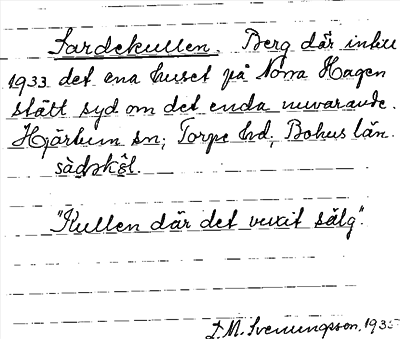 Sardekullen. Berg där intill
1933 det ena huset på Norra Hagen
stått syd om det enda nuvarande.
Hjärtum sn; Torpe hd; Bohus län.
"Kullen där det vuxit sälg".
D.M. Svenungsson, 1935